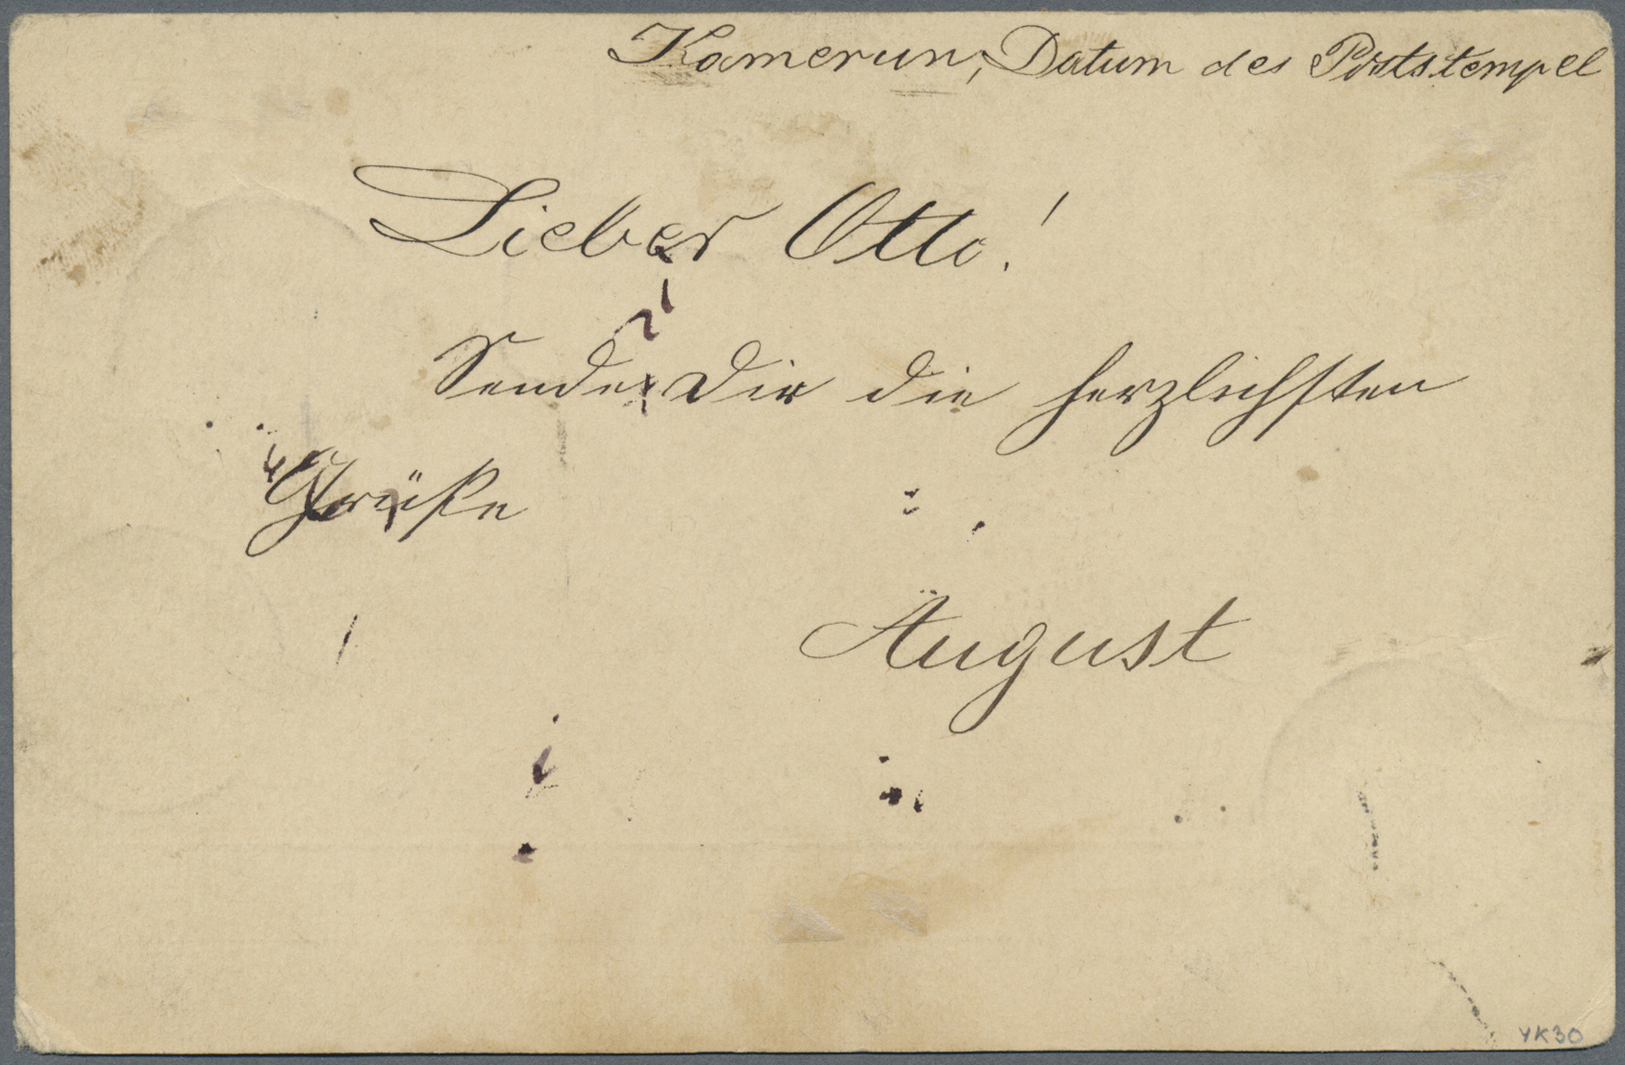 Kamerun, Datum des Poststempel
Lieber Otto!
Sende Dir die herzlichsten
Grüße
August
YK30